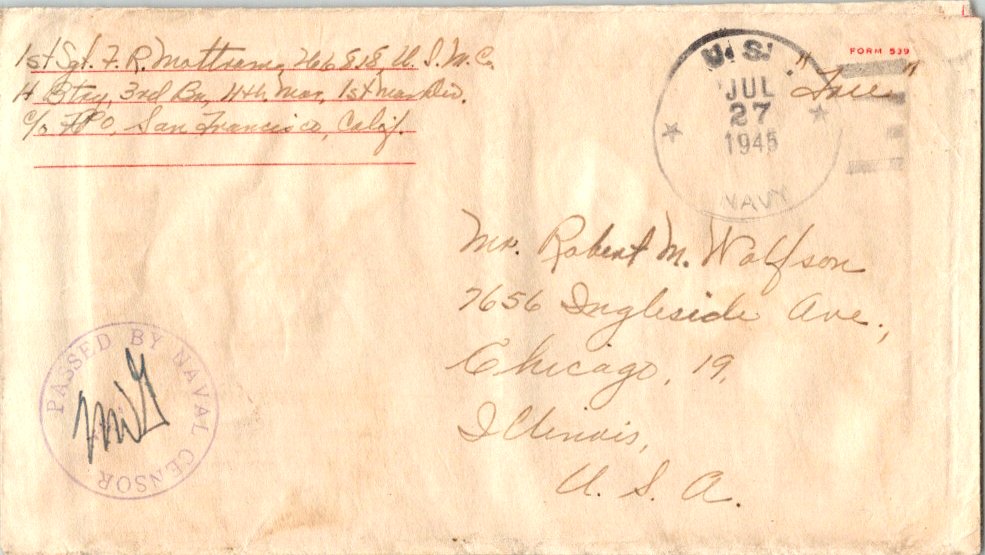 1st Sgt. F. R. Mottram, 266818, U.S.M.C.
H Btry, 3rd Bn, 11th Mar, 1st Mar Div.
c/o FPO, San Francisco, Calif.
U. S.
JUL
27
1945
NAVY
FORM 539
"Free"
Mr. Robert M. Wolfson
7656 Ingleside Ave.,
Chicago, 19,
Illinois,
U. S. A.
PASSED BY NAVAL CENSOR